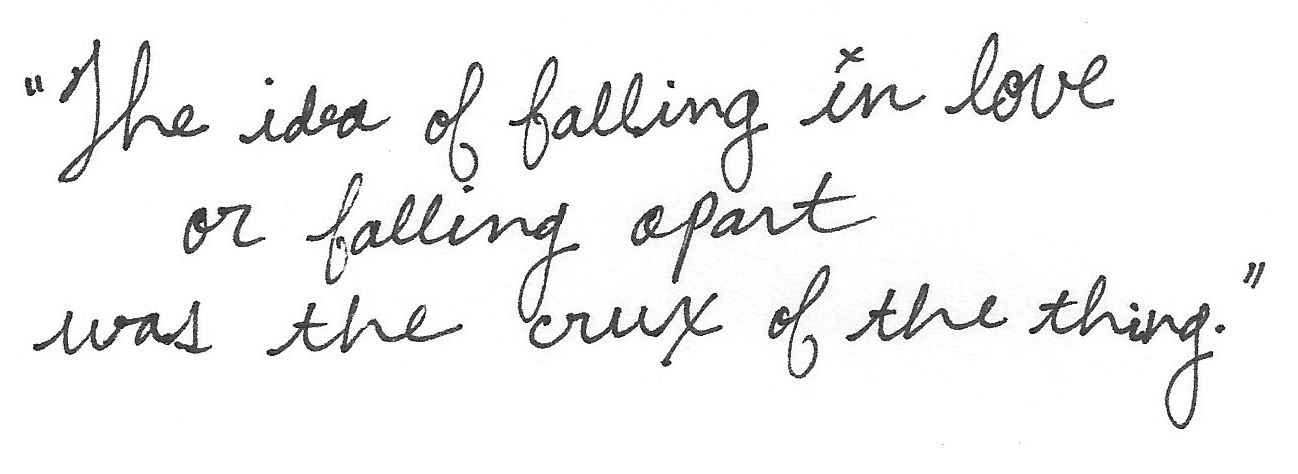 "The idea of falling in love
or falling apart
was the crux of the thing."